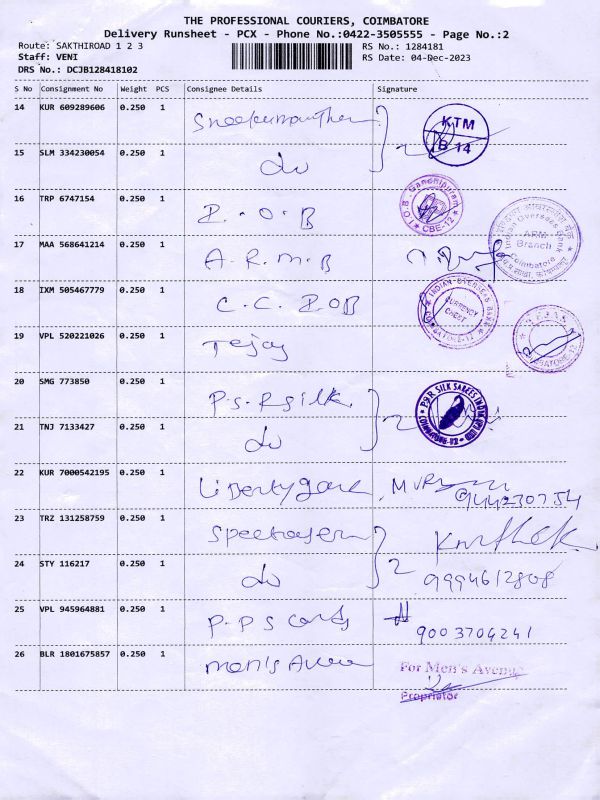 THE PROFESSIONAL COURIERS, COIMBATORE
Delivery Runsheet - PCX - Phone No.:0422-3505555 - Page No.:2
Route: SAKTHIROAD 1 2 3 RS No.: 1284181
Staff: VENI RS Date: 04-Dec-2023
DRS No.: DCJB128418102
S No Consignment No Weight PCS Consignee Details Signature
14 KUR 609289606 0.250 1
KTM
B 14
15 SLM 334230054 0.250 1 do
2
16 TRP 6747154 0.250 1 I.O.B
I.O.B. Gandhipuram
CBE-12
17 MAA 568641214 0.250 1 A.R.M.B
Indian Overseas Bank
ARM
Branch
Coimbatore
18 IXM 505467779 0.250 1 C.C. IOB
INDIAN OVERSEAS BANK
CURRENCY
CHEST
19 VPL 520221026 0.250 1 Tejas
20 SMG 773850 0.250 1 P.S.R silk
2
P.S.R SILK SAREES INDIA
COIMBATORE-12
21 TNJ 7133427 0.250 1 do
22 KUR 7000542195 0.250 1 Liberty
23 TRZ 131258759 0.250 1
24 STY 116217 0.250 1 do 2
9994612808
25 VPL 945964881 0.250 1 P.P.S cards
9003704241
26 BLR 1801675857 0.250 1 Men's Avenue
For Men's Avenue
Proprietor